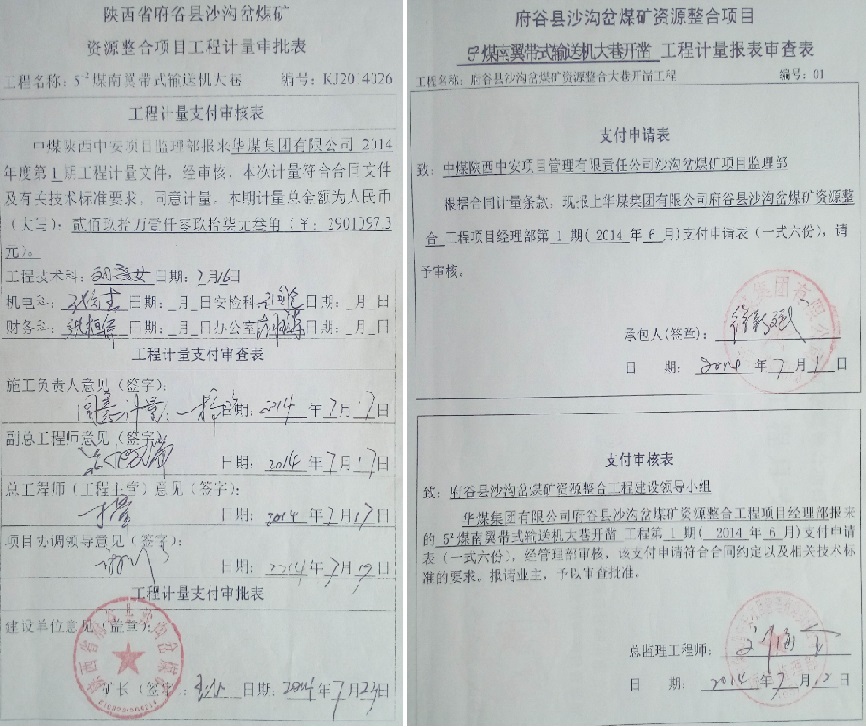 陕西省府谷县沙沟岔煤矿
资源整合项目工程计量审批表
工程名称：5⁻²煤南翼带式输送机大巷 编号：KJ2014026
工程计量支付审核表
中煤陕西中安项目监理部报来华煤集团有限公司 2014
年度第1期工程计量文件，经审核，本次计量符合合同文件
及有关技术标准要求，同意计量。本期计量总金额为人民币
（大写）：贰佰玖拾万壹仟零玖拾柒元叁角（￥：2901097.3
元）。
工程技术科： 日期：7月16日
机电科： 日期： 月 日安检科： 日期： 月 日
财务科： 日期： 月 日办公室： 日期： 月 日
工程计量支付审查表
施工负责人意见（签字）：
同意计量 日期：2014 年7月17日
副总工程师意见（签字）
日期：2014 年7月17日
总工程师（工程主管）意见（签字）：
日期：2014 年7月17日
项目协调领导意见（签字）：
日期：2014年7月17日
工程计量支付审批表
建设单位意见（盖章）：
矿长（签字）： 日期：2014年7月24日
府谷县沙沟岔煤矿资源整合项目
5⁻²煤南翼带式输送机大巷开凿 工程计量报表审查表
工程名称：府谷县沙沟岔煤矿资源整合大巷开凿工程 编号：01
支付申请表
致：中煤陕西中安项目管理有限责任公司沙沟岔煤矿项目监理部
根据合同计量条款，现报上华煤集团有限公司府谷县沙沟岔煤矿资源整
合 工程项目经理部第 1 期（2014 年 6 月）支付申请表（一式六份），请
予审核。
承包人（签章）：
日 期：2014 年 7 月 1 日
支付审核表
致：府谷县沙沟岔煤矿资源整合工程建设领导小组
华煤集团有限公司府谷县沙沟岔煤矿资源整合工程项目经理部报来
的 5⁻²煤南翼带式输送机大巷开凿 工程第 1 期（2014 年 6 月）支付申请
表（一式六份），经管理部审核，该支付申请符合合同约定以及相关技术标
准的要求。报请业主，予以审查批准。
总监理工程师：
日 期：2014 年 7 月 12 日